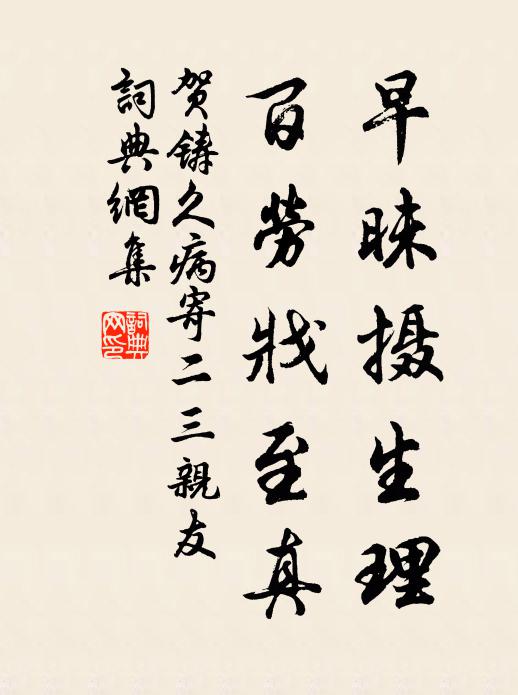 早昧摄生理
百劳戕至真
贺铸久病寄二三親友
詞典網集
詞典网印